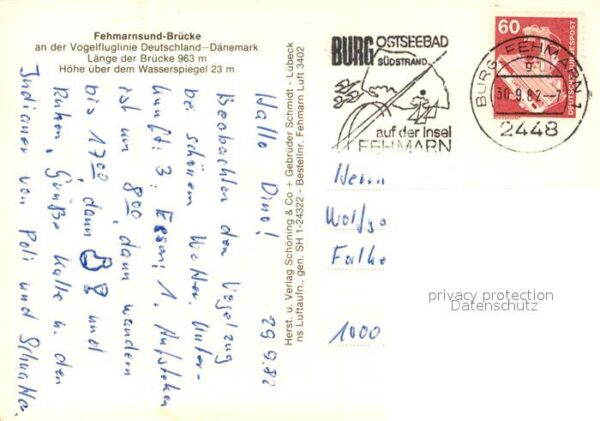 Fehmarnsund-Brücke
an der Vogelfluglinie Deutschland–Dänemark
Länge der Brücke 963 m
Höhe über dem Wasserspiegel 23 m
Hallo Dino! 29.9.82
Beobachten den Vogelzug
bei schönem Wetter. Unter-
kunft: 3; Essen: 1. Aufstehen
ist um 8⁰⁰, dann wandern
bis 17⁰⁰, dann und
Ruhen. Grüße Kalle u. den
Indianer von Poli und
Herst. u. Verlag Schöning & Co + Gebrüder Schmidt - Lübeck
ns Luftaufn., gen. SH 1-24322 - Bestellnr. Fehmarn Luft 3402
BURG OSTSEEBAD
SÜDSTRAND
auf der Insel
FEHMARN
BURG, FEHMARN 1
30.9.82-
2448
60
DEUTSCHE BUNDESPOST
Herrn
Wolfga
Falke
1000
privacy protection
Datenschutz